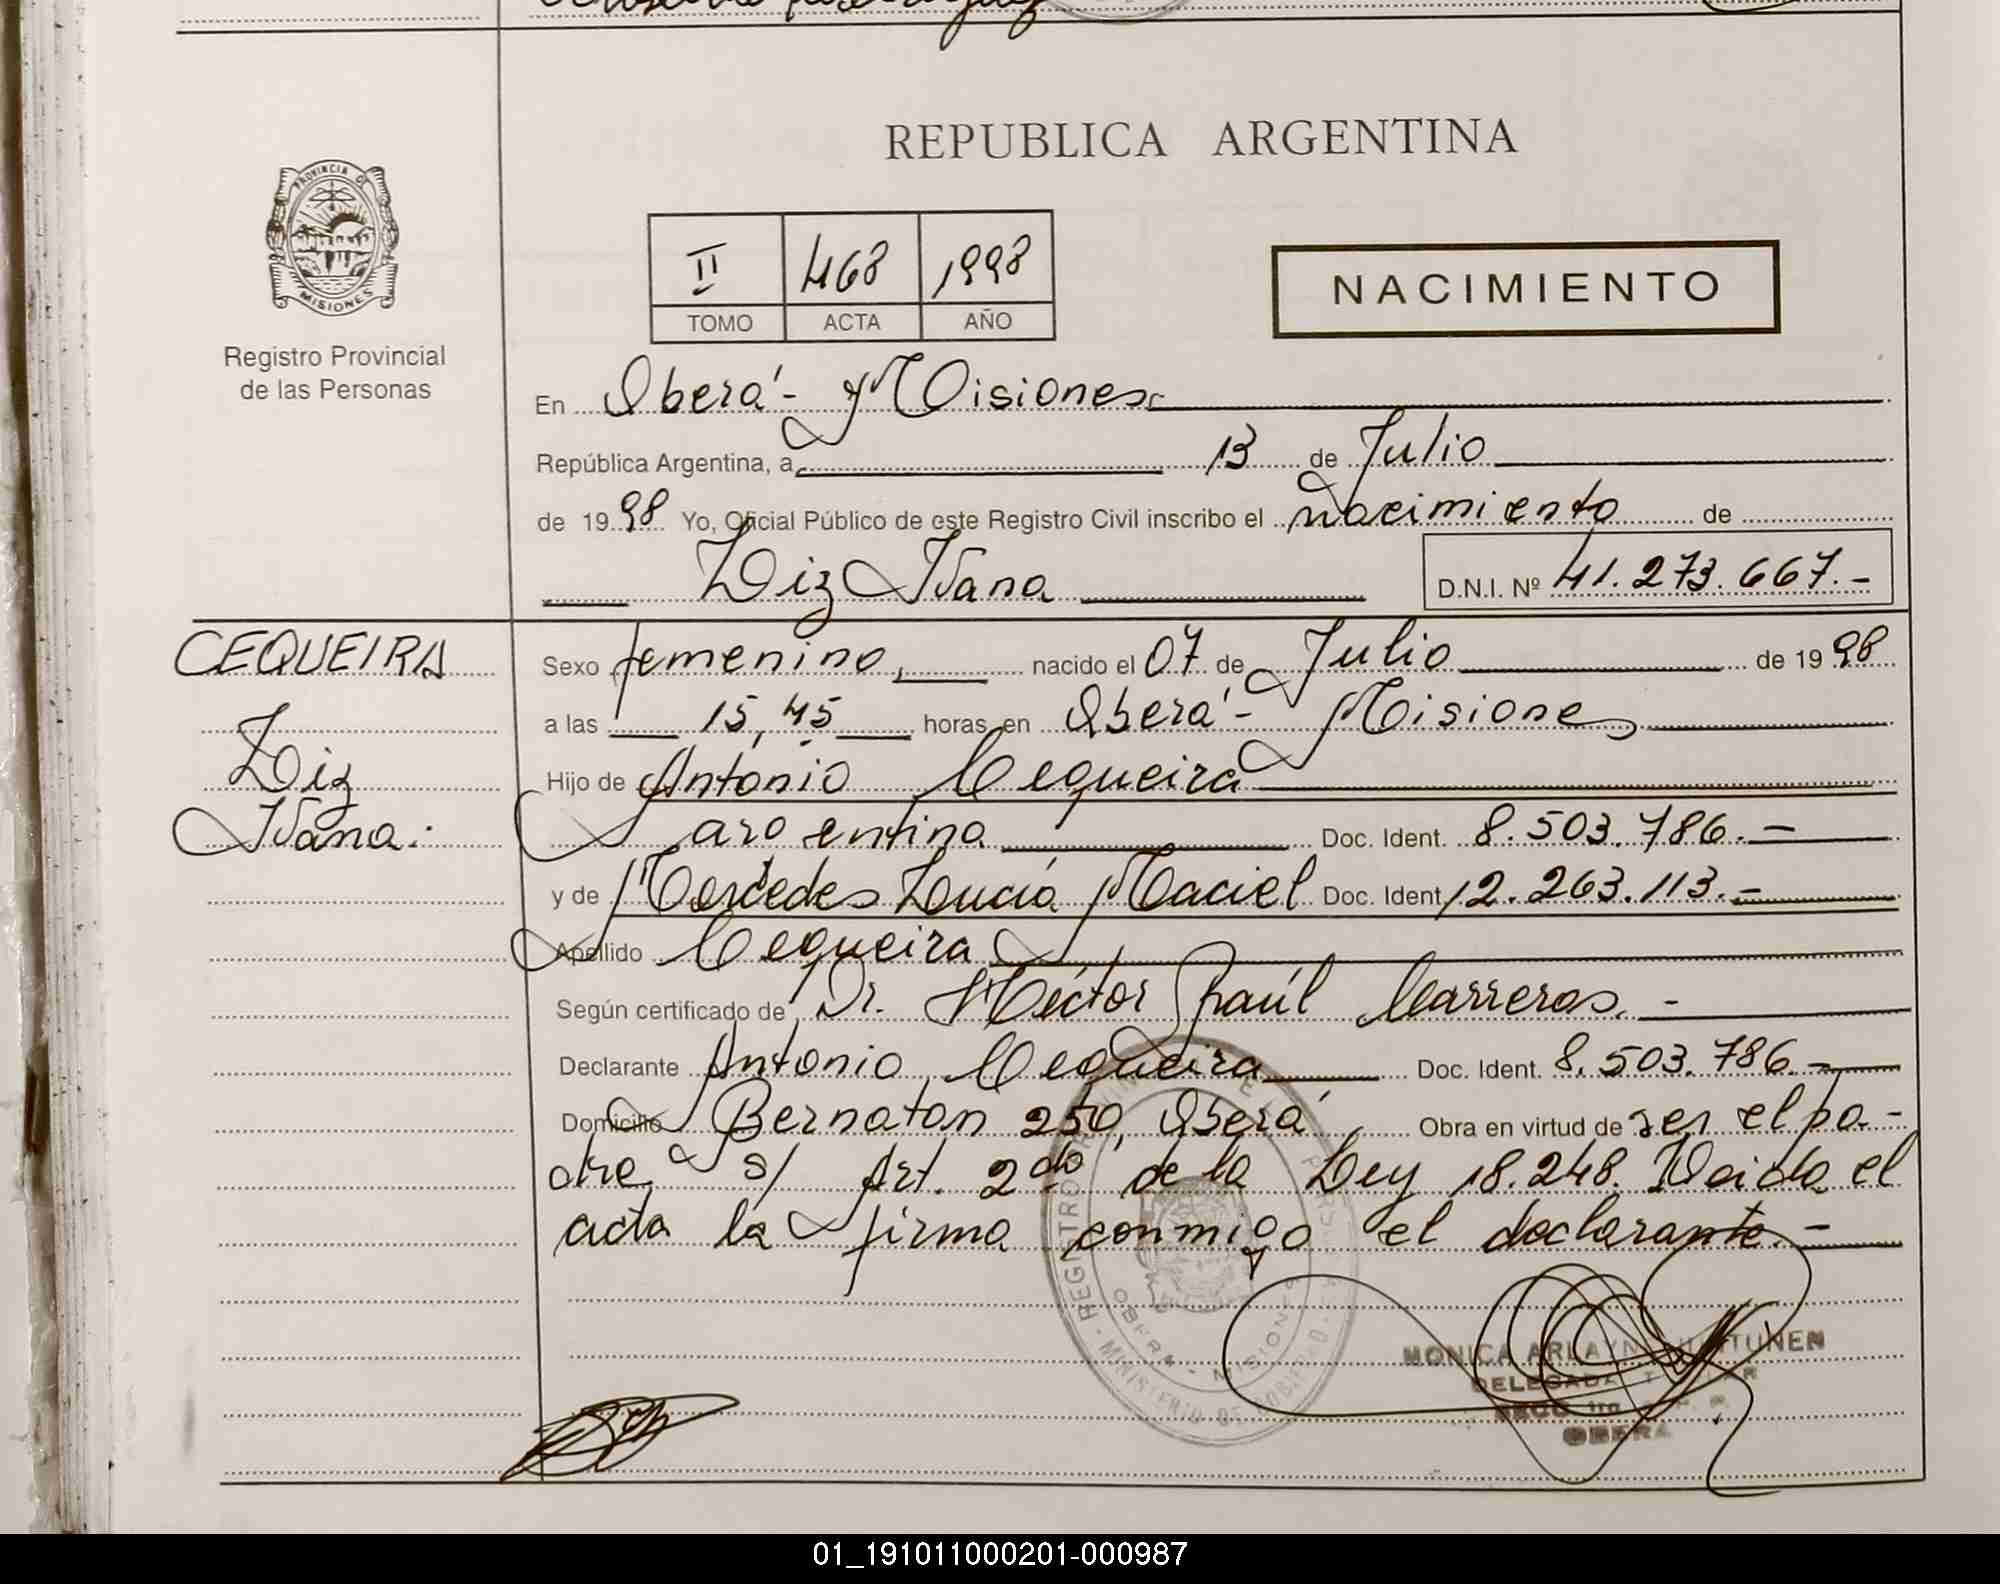 REPUBLICA ARGENTINA
PROVINCIA DE
MISIONES
Registro Provincial
de las Personas
II 468 1998
TOMO ACTA AÑO
NACIMIENTO
En Oberá - Misiones
República Argentina, a 13 de Julio
de 1998 Yo, Oficial Público de este Registro Civil inscribo el nacimiento de
Liz Ivana D.N.I. Nº 41.273.667.-
CEQUEIRA
Liz
Ivana.
Sexo femenino, nacido el 07 de Julio de 1998
a las 15,45 horas en Oberá - Misiones
Hijo de Antonio Cequeira
argentina Doc. Ident. 8.503.786.-
y de Mercedes Lucía Maciel Doc. Ident. 12.263.113.-
Apellido Cequeira
Según certificado de Dr. Héctor Raúl Carreras.-
Declarante Antonio Cequeira Doc. Ident. 8.503.786.-
Domicilio Bernaton 250, Oberá Obra en virtud de ser el pa-
dre s/ Art. 2do de la Ley 18.248. Leida el
acta la firma conmigo el declarante.-
OBERA - MISIONES
MONICA ARLAYN
DELEGADA
OBERA
01_191011000201-000987